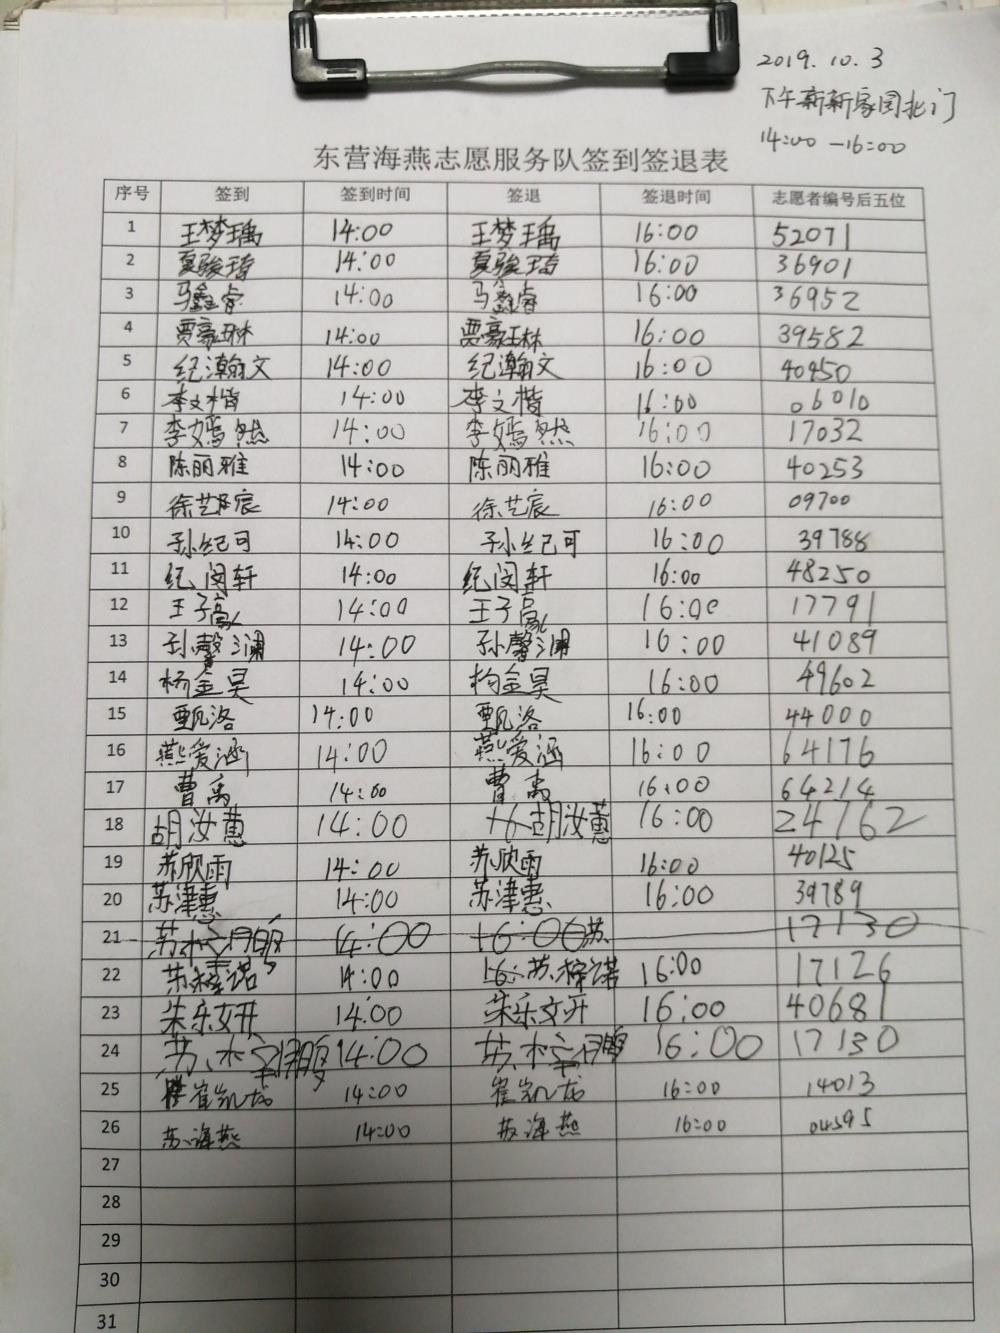 2019.10.3
下午新新家园北门
14:00-16:00
东营海燕志愿服务队签到签退表
序号 签到 签到时间 签退 签退时间 志愿者编号后五位
1 王梦瑀 14:00 王梦瑀 16:00 52071
2 夏骏琦 14:00 夏骏琦 16:00 36901
3 马鑫睿 14:00 马鑫睿 16:00 36952
4 贾豪琳 14:00 贾豪琳 16:00 39582
5 纪瀚文 14:00 纪瀚文 16:00 40450
6 李文楷 14:00 李文楷 16:00 06010
7 李嫣然 14:00 李嫣然 16:00 17032
8 陈丽雅 14:00 陈丽雅 16:00 40253
9 徐艺宸 14:00 徐艺宸 16:00 09700
10 孙纪可 14:00 孙纪可 16:00 39788
11 纪闵轩 14:00 纪闵轩 16:00 48250
12 王子 14:00 王子 16:00 17791
13 孙馨澜 14:00 孙馨澜 16:00 41089
14 杨金昊 14:00 杨金昊 16:00 49602
15 甄洛 14:00 甄洛 16:00 44000
16 燕爱涵 14:00 燕爱涵 16:00 64176
17 曹禹 14:00 曹禹 16:00 64214
18 胡汝蕙 14:00 胡汝蕙 16:00 24762
19 苏欣雨 14:00 苏欣雨 16:00 40125
20 苏津惠 14:00 苏津惠 16:00 39789
21 苏梓鹏 14:00 16:00苏 17130
22 苏梓诺 14:00 苏梓诺 16:00 17126
23 朱乐妍 14:00 朱乐妍 16:00 40681
24 苏梓鹏 14:00 苏梓鹏 16:00 17130
25 崔凯龙 14:00 崔凯龙 16:00 14013
26 苏海燕 14:00 苏海燕 16:00 04595
27
28
29
30
31